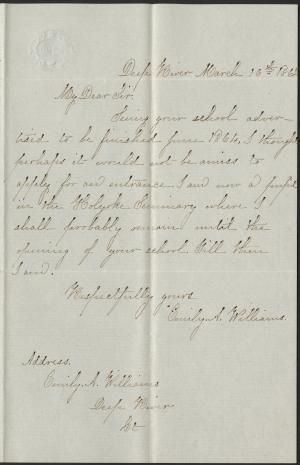 Deep River March 16th 186
My Dear Sir.
Seeing your school adver-
tised to be finished June 1864, I thought
perhaps it would not be amiss to
apply for an entrance. I am now a pupil
in the Holyoke Seminary where I
shall probably remain until the
opening of your school. Till then
I am.
Respectfully yours
Emily A. Williams.
Address.
Emily A. Williams
Deep River
Ct